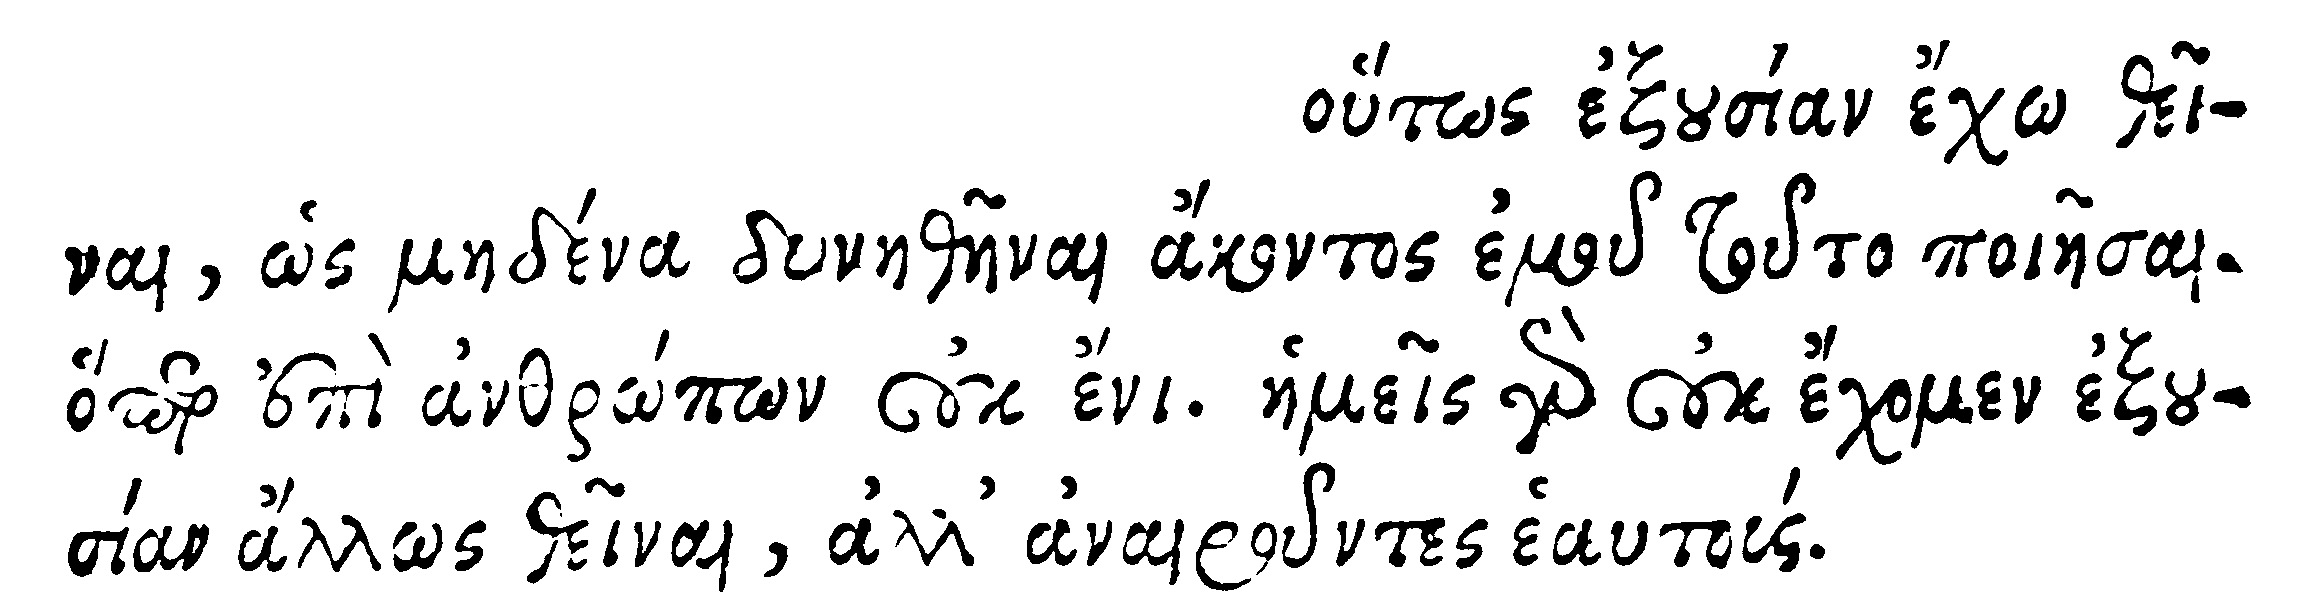 οὕτως ἐξουσίαν ἔχω θεῖ-
ναι, ὡς μηδένα δυνηθῆναι ἄκοντος ἐμοῦ τοῦτο ποιῆσαι.
ὅπερ ἐπὶ ἀνθρώπων οὐκ ἔνι. ἡμεῖς γὰρ οὐκ ἔχομεν ἐξου-
σίαν ἄλλως θεῖναι, ἀλλ' ἀναιροῦντες ἑαυτούς.